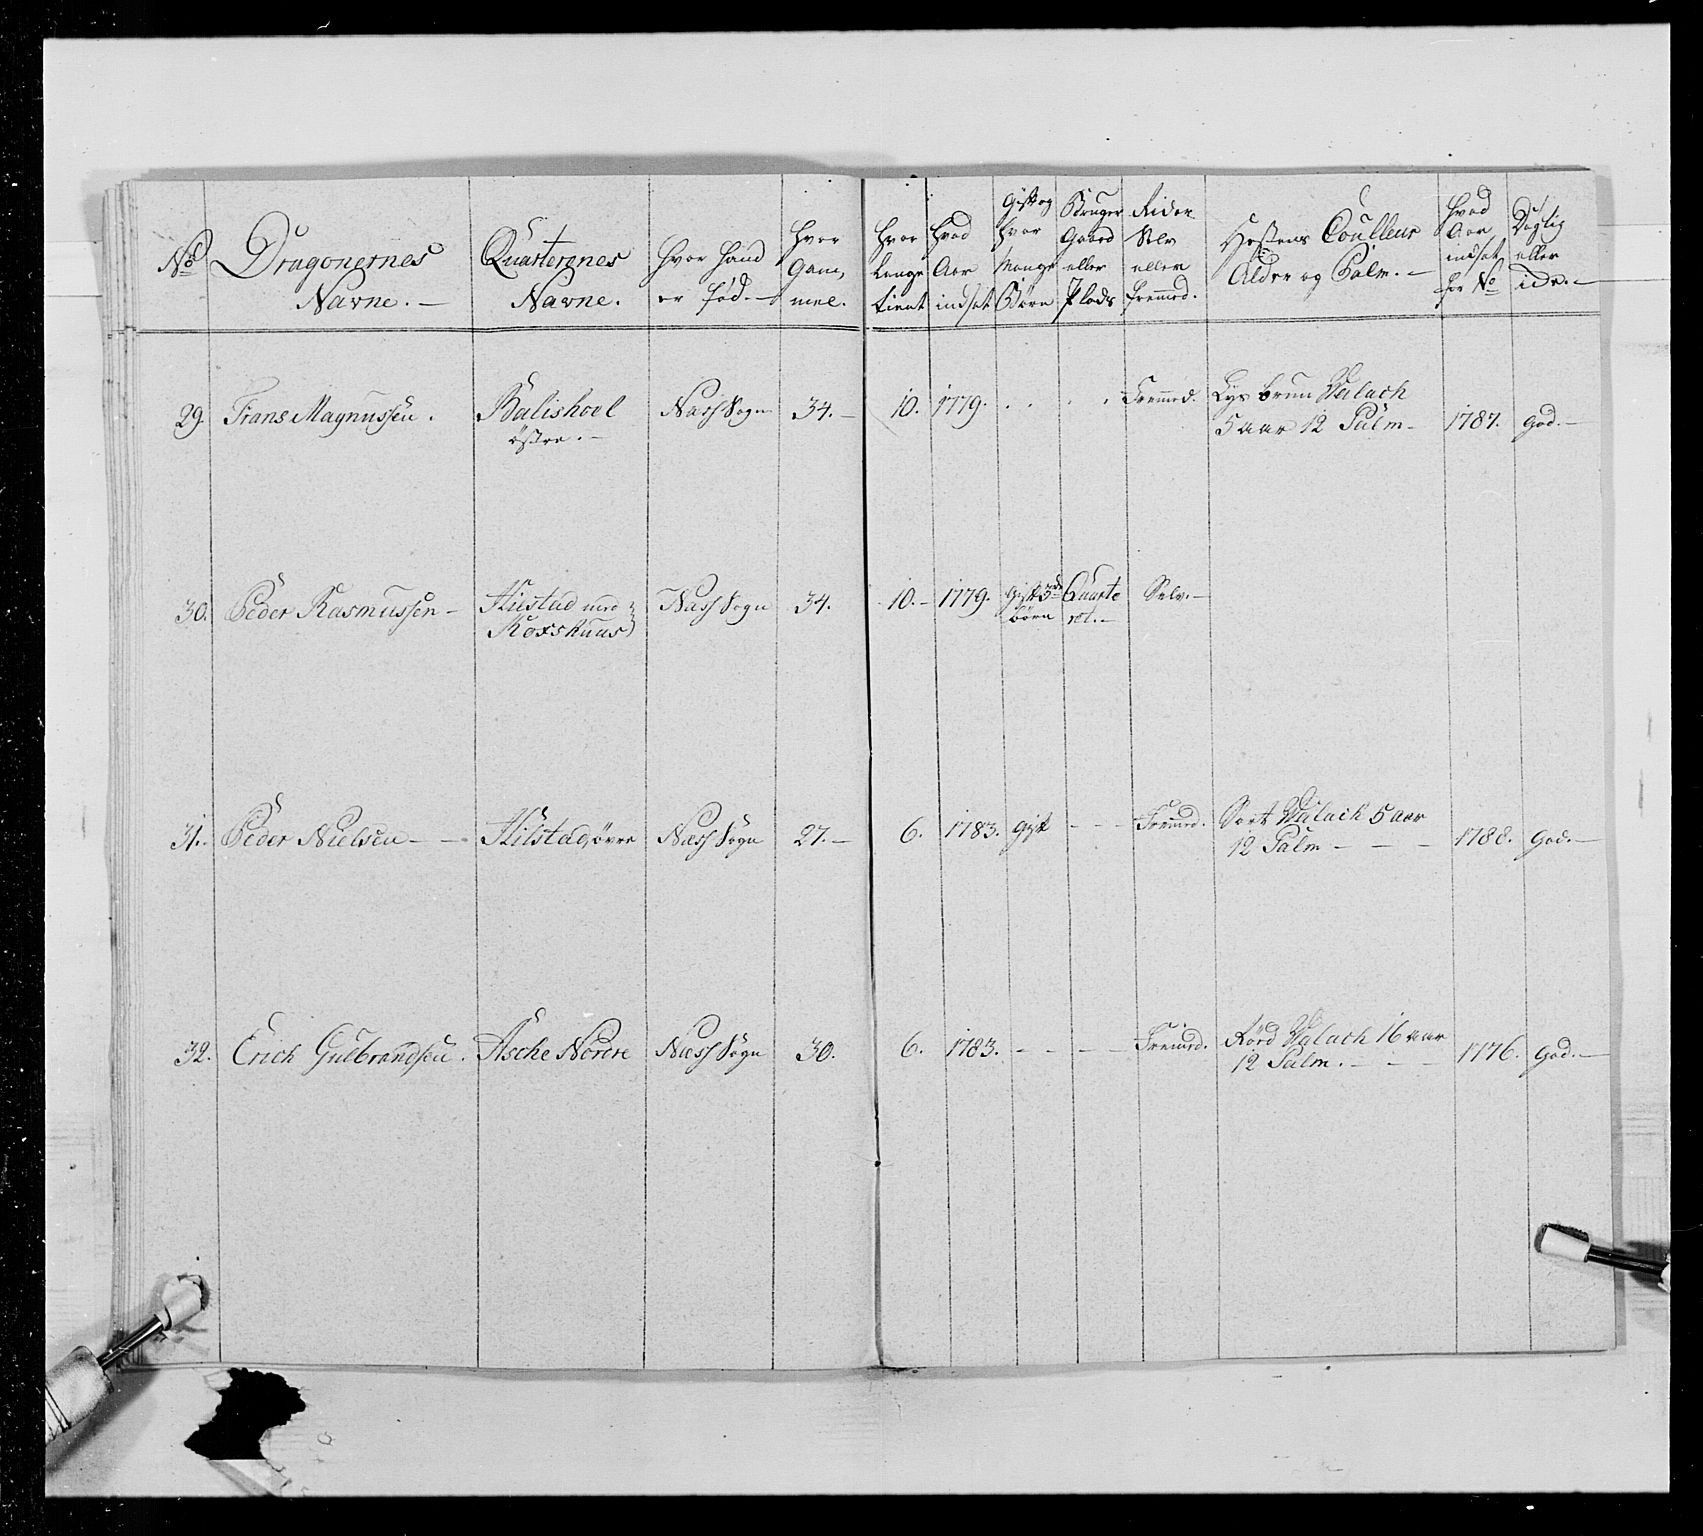 No Dragonernes Navne. — Quarterernes Navne. Hvor Hand er föd. — Hvor Gam, mel. Hvor Lenge tient Hvad Aar indsat Gift og Hvor Mange Börn Bruger Gaard eller Plads Rider Selv eller fremed. Hestens Coulleur Alder og Palm. — Hvad Aar indsat for No Dögtig eller ide. —
29. Frans Magnussen. Balishoel östre. — Næss Sogn 34. — 10. 1779. . . . . Fremed. Lys brun Walach 5 aar 12 Palm — 1787. god. —
30. Peder Rasmussen — Hilstad med Koxshuus Næss Sogn 34. 10. — 1779. Gift 3de börn Quarte ret. — Selv. —
31. Peder Nielsen — — Hilstad, övre Næss Sogn 27. — 6. 1783. gift — — Fremed. Sort Walach 5 aar 12 Palm — — — 1788. God. —
32. Erich Gulbrandsen. Asche Nordre Næss Sogn 30. 6. 1783. — — — — Fremed. Rörd Walach 16 aar 12 Palm. — — — 1776. God. —